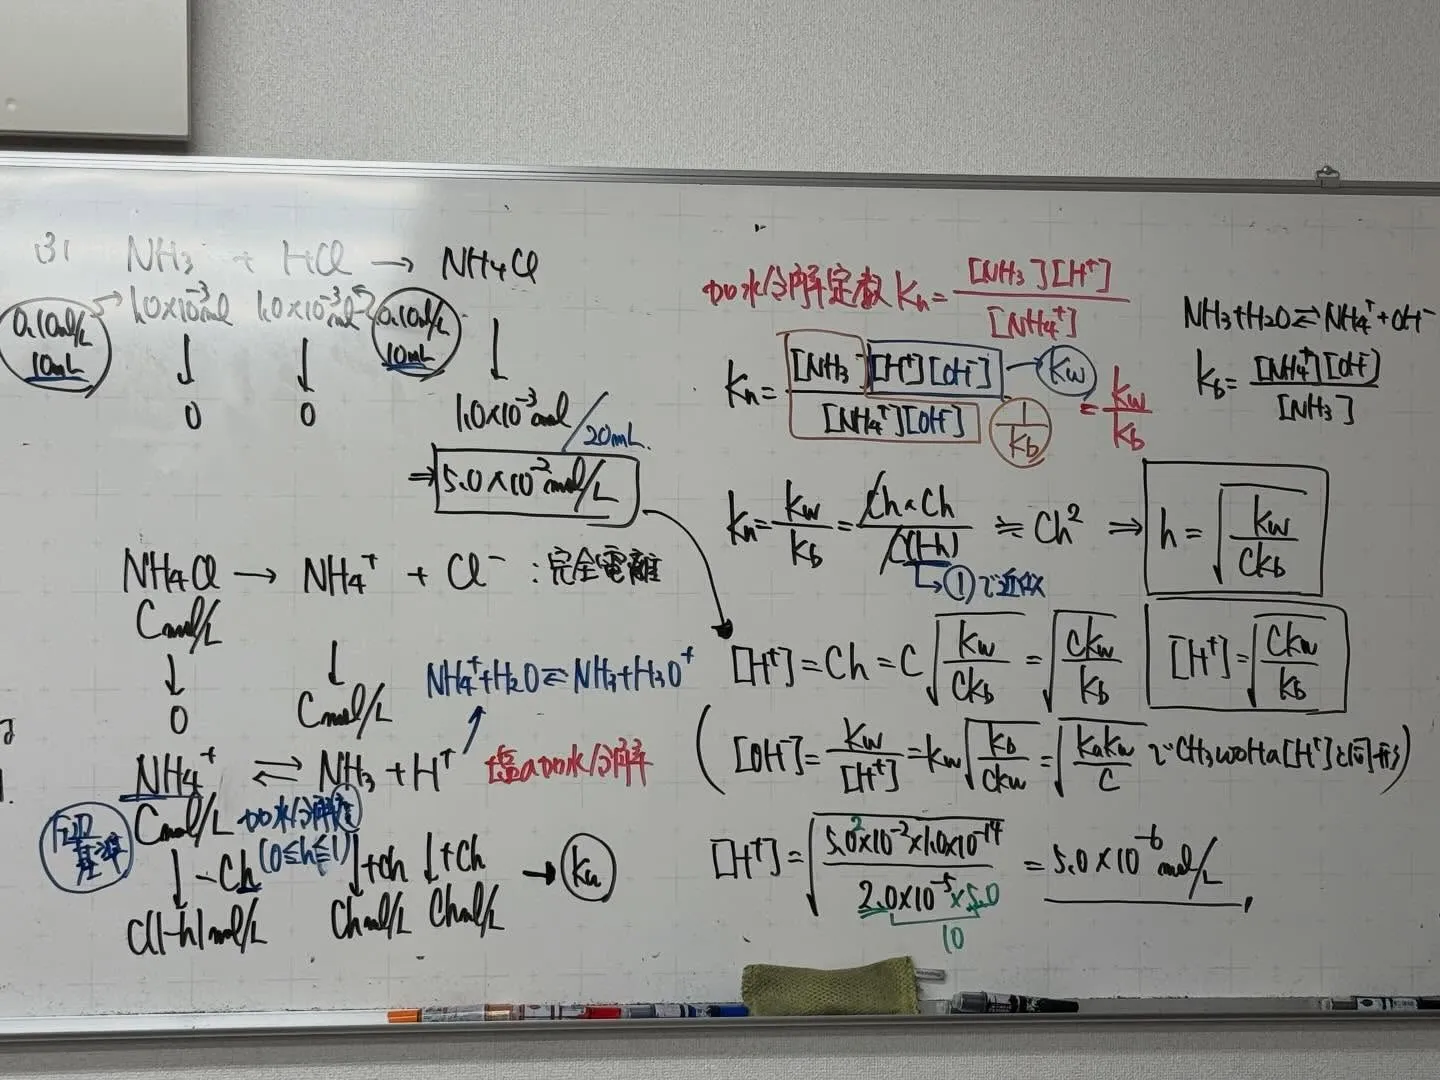 (3) NH₃ + HCl → NH₄Cl
0.10mol/L 10mL
1.0×10⁻³mol 1.0×10⁻³mol
0.10mol/L 10mL
↓ ↓ ↓
0 0 1.0×10⁻³mol/20mL.
⇒ 5.0×10⁻²mol/L
NH₄Cl → NH₄⁺ + Cl⁻ : 完全電離
Cmol/L
↓ ↓
0 Cmol/L
NH₄⁺+H₂O⇄NH₃+H₃O⁺
NH₄⁺ ⇄ NH₃ + H⁺ 塩の加水分解
Cmol/L 加水分解度
基準
(0≦h≦1)
↓-Ch ↓+Ch ↓+Ch → Kh
C(1-h)mol/L Chmol/L Chmol/L
加水分解定数 Kh = [NH₃][H⁺]/[NH₄⁺]
NH₃+H₂O⇄NH₄⁺+OH⁻
Kb = [NH₄⁺][OH⁻]/[NH₃]
Kh = [NH₃][H⁺][OH⁻]/[NH₄⁺][OH⁻] → Kw 1/Kb = Kw/Kb
Kh = Kw/Kb = Ch×Ch/C(1-h) ≒ Ch² ⇒ h = √(Kw/CKb)
→①で近似
[H⁺] = Ch = C√(Kw/CKb) = √(CKw/Kb) [H⁺] = √(CKw/Kb)
([OH⁻] = Kw/[H⁺] = Kw√(Kb/CKw) = √(KbKw/C) でCH₃COOHの[H⁺]と同形)
[H⁺] = √(5.0²×10⁻²×1.0×10⁻¹⁴/2.0×10⁻⁵×5.0) = 5.0×10⁻⁶mol/L
10